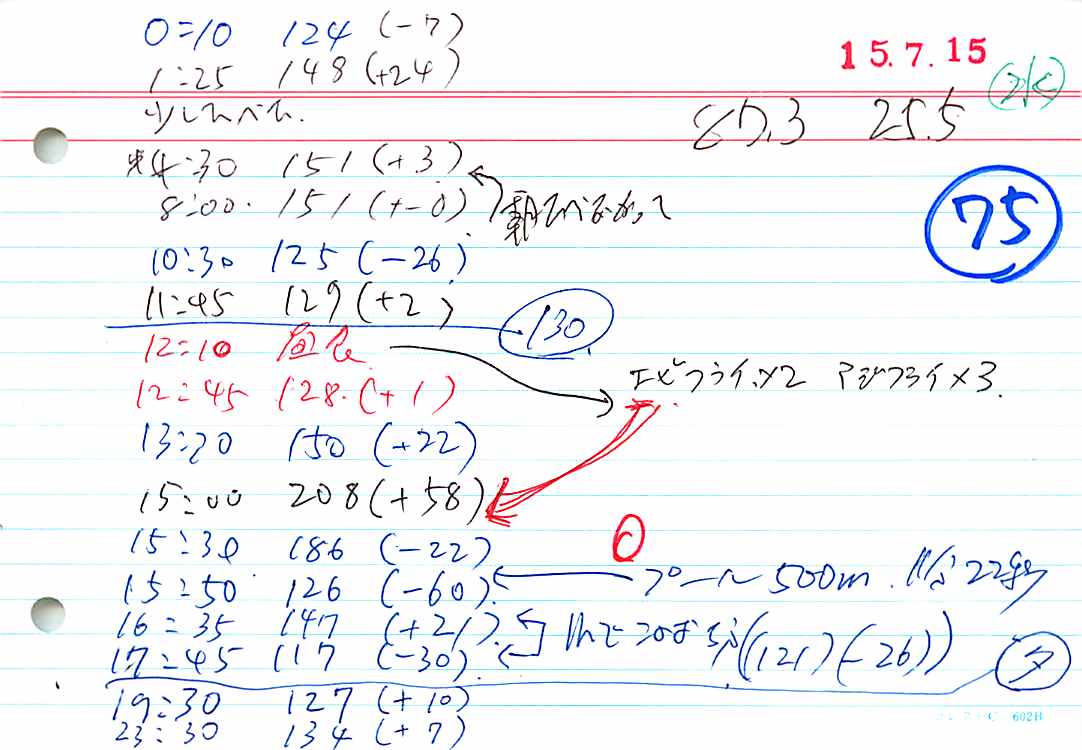 0:10 124 (-7)
15.7.15 (水)
1:25 148 (+24)
少したべた.
85.3 25.5
*4:30 151 (+3)
8:00. 151 (+-0)
75
10:30 125 (-26)
11:45 129 (+2)
130
12:10 昼食
エビフライ×2 アジフライ×3.
12:45 128. (+1)
13:20 150 (+22)
15:00 208 (+58)
15:30 186 (-22)
15:50 126 (-60) プール 500m.
16:35 147 (+21)
17:45 117 (-30) ((121)(-26)) 夕
19:30 127 (+10)
23:30 134 (+7)
602B